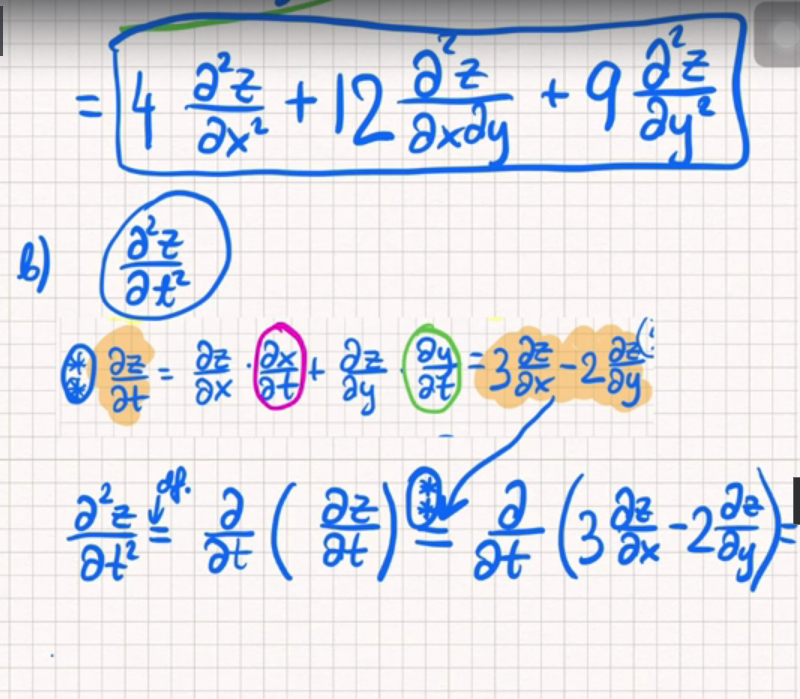 = 4 ∂²z/∂x² + 12 ∂²z/∂x∂y + 9 ∂²z/∂y²
b) ∂²z/∂t²
** ∂z/∂t = ∂z/∂x · ∂x/∂t + ∂z/∂y · ∂y/∂t = 3 ∂z/∂x - 2 ∂z/∂y
∂²z/∂t² def. = ∂/∂t ( ∂z/∂t ) ** = ∂/∂t ( 3 ∂z/∂x - 2 ∂z/∂y ) =